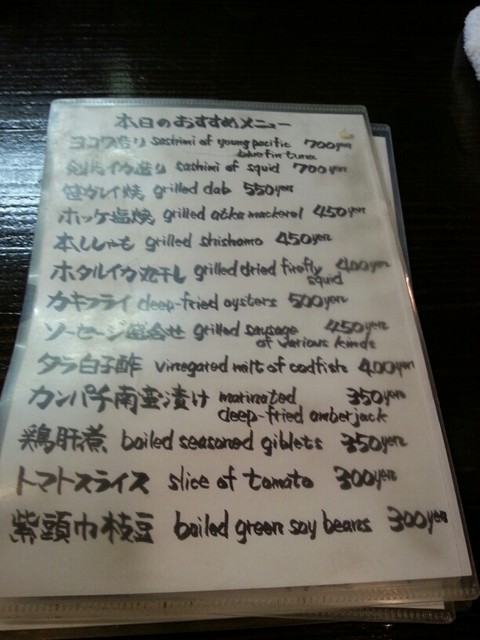 本日のおすすめメニュー
ヨコワ造り sashimi of young pacific 700yen
bluefin tuna
剣先イカ造り sashimi of squid 700yen
笹ガレイ焼 grilled dab 550yen
ホッケ塩焼 grilled atka mackerel 450yen
本ししゃも grilled shishamo 450yen
ホタルイカ丸干し grilled dried firefly 400yen
squid
カキフライ deep-fried oysters 500yen
ソーセージ盛合せ grilled sausage 450yen
of various kinds
タラ白子酢 vinegared milt of codfish 400yen
カンパチ南蛮漬け marinated 350yen
deep-fried amberjack
鶏肝煮 boiled seasoned giblets 350yen
トマトスライス slice of tomato 300yen
紫頭巾枝豆 boiled green soy beans 300yen